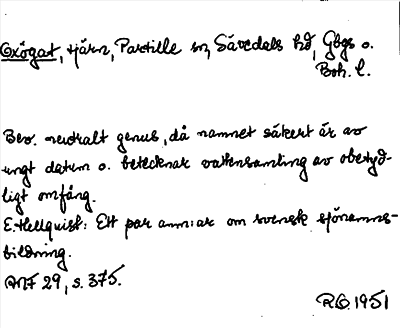 Oxögat, tjärn, Partille sn, Sävedals hd, Gbgs o.
Boh. l.
Bev. neutralt genus, då namnet säkert är av
ungt datum o. betecknar vattensamling av obetyd-
ligt omfång.
E. Hellquist: Ett par anm:ar om svensk sjönamns-
bildning.
ANF 29, s. 375.
1951